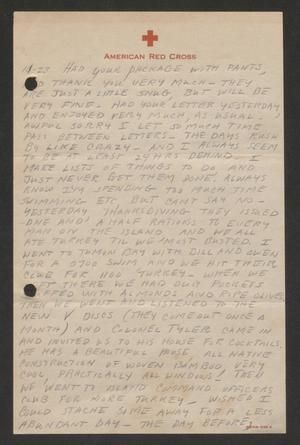 AMERICAN RED CROSS
11-23 HAD YOUR PACKAGE WITH PANTS,
AND THANK YOU VERY MUCH - THEY
ARE JUST A LITTLE SNUG BUT WILL BE
VERY FINE. HAD YOUR LETTER YESTERDAY
AND ENJOYED VERY MUCH, AS USUAL.
AWFUL SORRY I LET SO MUCH TIME
PASS BETWEEN LETTERS - THE DAYS RUSH
BY LIKE CRAZY - AND I ALWAYS SEEM
TO BE AT LEAST 24 HRS BEHIND. I
MAKE LISTS OF THINGS TO DO AND
JUST NEVER GET THEM DONE! ALWAYS
KNOW I'M SPENDING TOO MUCH TIME
SWIMMING ETC, BUT CAN'T SAY NO -
YESTERDAY THANKSGIVING THEY ISSUED
ONE AND A HALF RATIONS TO EVERY
MAN ON THE ISLAND AND WE ALL
ATE TURKEY TIL WE MOST BUSTED. I
WENT TO BAY WITH DILL AND OWEN
FOR A SWIM AND WE HIT THEIR
CLUB FOR TURKEY - WHEN WE
LEFT THERE WE HAD OUR POCKETS
WITH ALMONDS AND RIPE OLIVES.
THEN WE WENT AND LISTENED TO THE
NEW V DISCS (THEY COME OUT ONCE A
MONTH) AND COLONEL TYLER CAME IN
AND INVITED US TO HIS HOUSE FOR COCKTAILS.
HE HAS A BEAUTIFUL HOUSE, ALL NATIVE
CONSTRUCTION OF WOVEN BAMBOO, VERY
COOL PRACTICALLY ALL WINDOWS! THEN
WE WENT TO ISLAND COMMAND OFFICERS
CLUB FOR MORE TURKEY - WISHED I
COULD STACHE SOME AWAY FOR A LESS
ABUNDANT DAY - THE DAY BEFORE